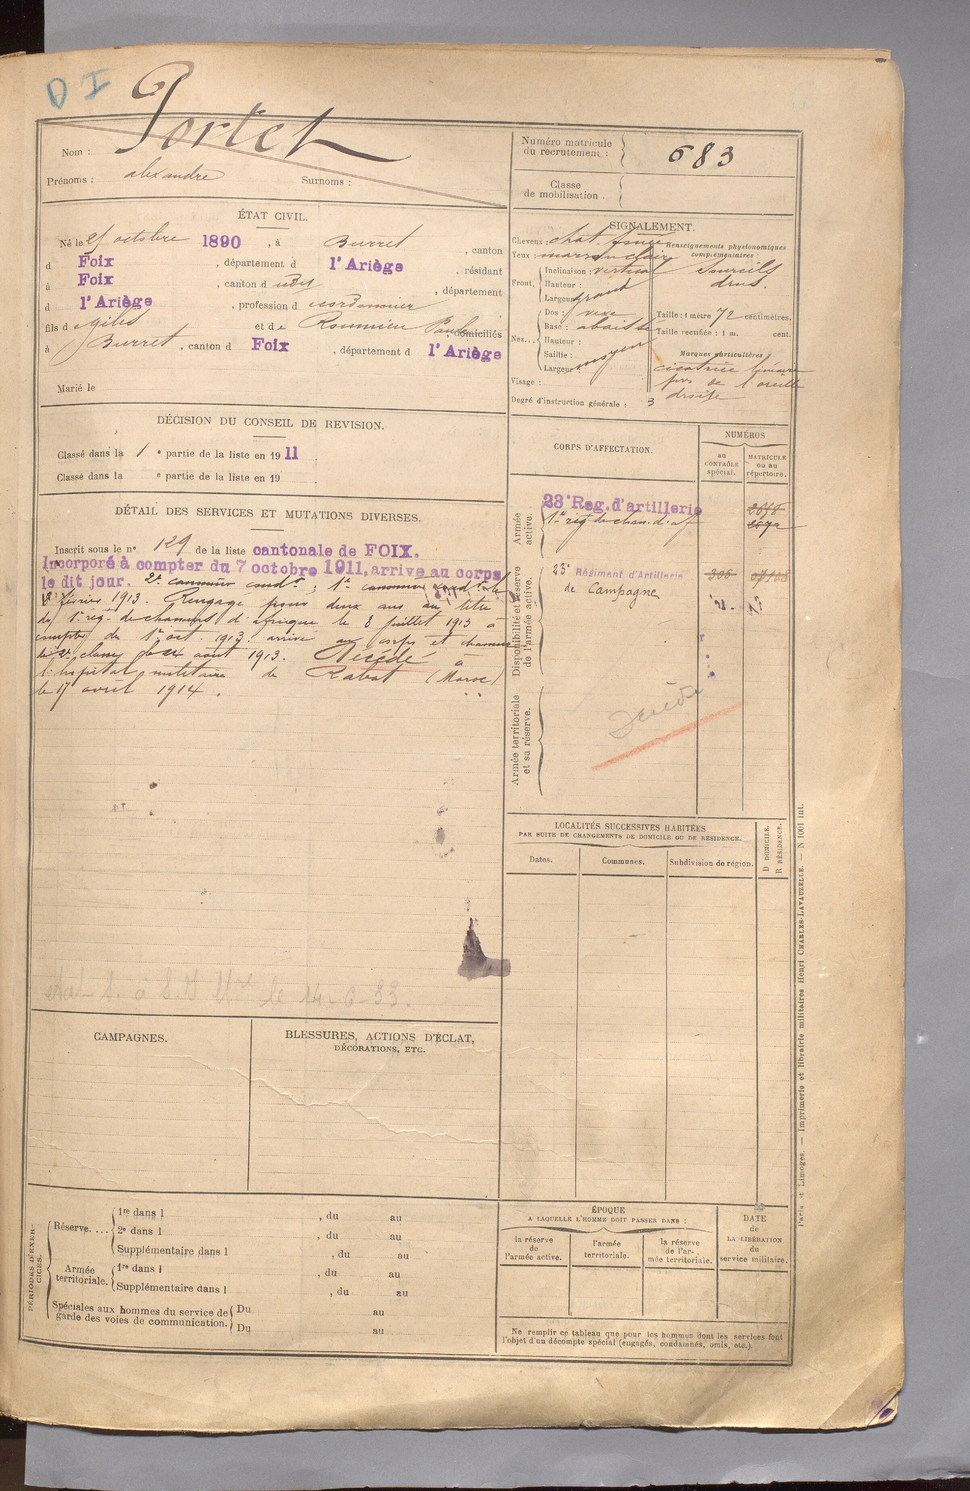 D I
Portet
Nom :
Prénoms : alexandre Surnoms :
Numéro matricule
du recrutement : 683
Classe
de mobilisation .
ÉTAT CIVIL.
Né le octobre 1890 , à Burret , canton
d Foix , département d l'Ariège , résidant
à Foix , canton d , département
d l'Ariège , profession d cordonnier
fils de gilis et de Roumieu Paule , domiciliés
à Burret , canton d Foix , département d l'Ariège
Marié le
SIGNALEMENT.
Cheveux : chat. foncé
Yeux : marron clair
Renseignements physionomiques
complémentaires :
Sourcils
drus.
Front. Inclinaison : vertical
Hauteur :
Largeur grand
Nez... Dos : vexe
Base : abaissé
Hauteur :
Saillie :
Largeur : moyen
Taille : 1 mètre 72 centimètres.
Taille rectifiée : 1 m. cent.
Marques particulières
cicatrice linéaire
de l'oreille
droite
Visage :
Degré d'instruction générale : 3
DÉCISION DU CONSEIL DE REVISION.
Classé dans la 1 e partie de la liste en 1911 .
Classé dans la e partie de la liste en 19 .
DÉTAIL DES SERVICES ET MUTATIONS DIVERSES.
Inscrit sous le n° 129 de la liste cantonale de FOIX.
Incorporé à compter du 7 octobre 1911, arrive au corps
le dit jour. 2e canonnier condr ; 1e canonnier condr le
8 février 1913. Rengagé pour deux ans au titre
du 1er rég. de chasseurs d'afrique le 8 juillet 1913 à
compter du 1er oct. 1913. arrivé au corps et chasseur
de 2e classe août 1913. Décédé à
l'hopital militaire de Rabat (Maroc)
le 17 avril 1914 .
CORPS D'AFFECTATION.
NUMÉROS
au
CONTRÔLE
spécial.
MATRICULE
ou au
répertoire.
Armée
active.
23e Reg. d'artillerie
1er rég de chas. d'af
Disponibilité et réserve
de l'armée active.
23e Régiment d'Artillerie
de Campagne
306
Armée territoriale
et sa réserve.
Décédé
LOCALITÉS SUCCESSIVES HABITÉES
PAR SUITE DE CHANGEMENTS DE DOMICILE OU DE RÉSIDENCE.
Dates. Communes. Subdivision de région.
D DOMICILE.
R RÉSIDENCE.
le 14-6-83.
CAMPAGNES.
BLESSURES, ACTIONS D'ÉCLAT,
DÉCORATIONS, ETC.
PÉRIODES D'EXER-
CICES.
Réserve.... 1re dans l , du au
2e dans l , du au
Supplémentaire dans l , du au
Armée
territoriale. 1re dans l , du au
Supplémentaire dans l , du au
Spéciales aux hommes du service de
garde des voies de communication. Du au
Du au
ÉPOQUE
A LAQUELLE L'HOMME DOIT PASSER DANS :
la réserve
de
l'armée active.
l'armée
territoriale.
la réserve
de l'ar-
mée territoriale.
DATE
de
LA LIBÉRATION
du
service militaire.
Ne remplir ce tableau que pour les hommes dont les services font
l'objet d'un décompte spécial (engagés, condamnés, omis, etc.).
Paris et Limoges. — Imprimerie et librairie militaires Henri CHARLES-LAVAUZELLE. — N 1001 int.